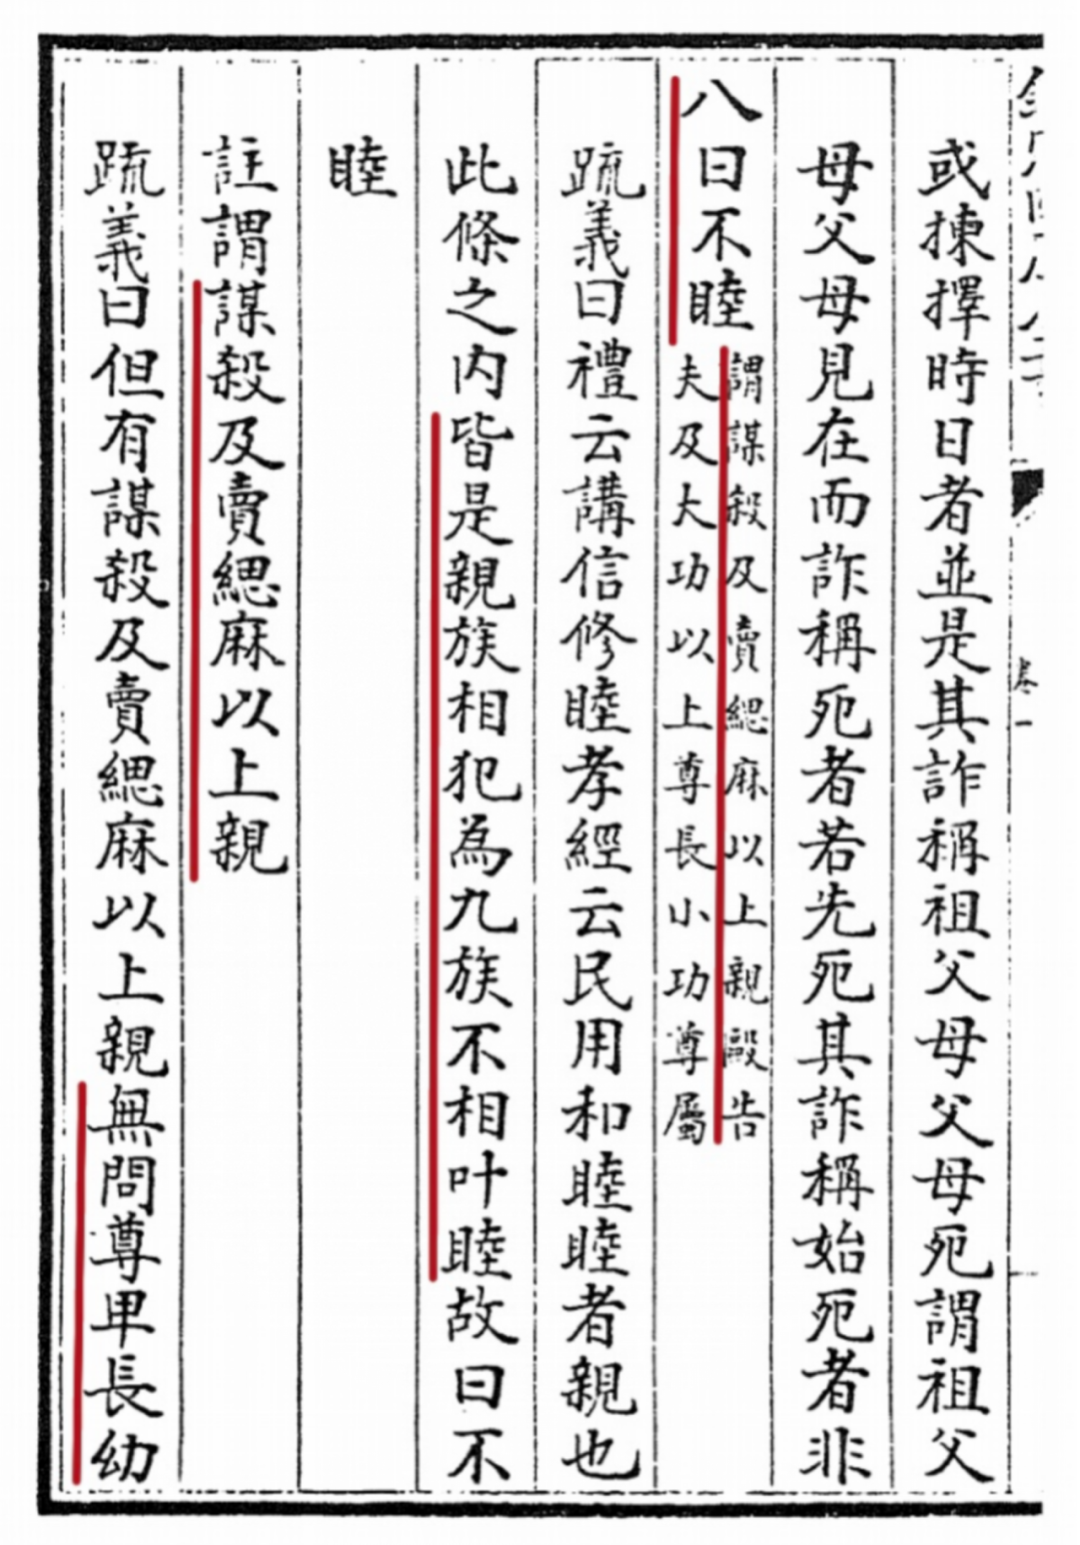 或揀擇時日者並是其詐稱祖父母父母死謂祖父
母父母見在而詐稱死者若先死其詐稱始死者非
八曰不睦
謂謀殺及賣緦麻以上親毆告
夫及大功以上尊長小功尊屬
疏義曰禮云講信修睦孝經云民用和睦睦者親也
此條之内皆是親族相犯為九族不相叶睦故曰不
睦
註謂謀殺及賣緦麻以上親
疏義曰但有謀殺及賣緦麻以上親無問尊卑長幼